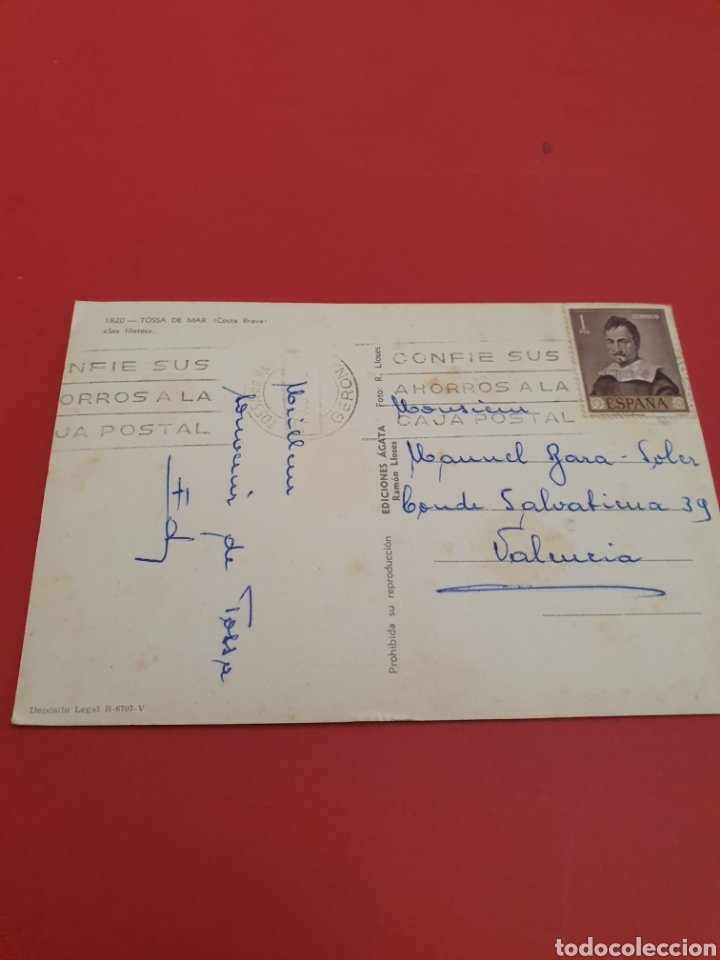 1820 — TOSSA DE MAR (Costa Brava)
«Ses Illetes».
CONFIE SUS
AHORROS A LA
CAJA POSTAL
NFIE SUS
ORROS A LA
JA POSTAL
GERON
1
PTA
CORREOS
ESPAÑA
Meilleur
souvenir
de Tossa
Prohibida su reproducción
EDICIONES ÁGATA
Ramón Lloses
Foto: R. Lloses
Monsieur
Manuel Gara-Soler
Conde Salvatierra 39
Valencia
Depósito Legal B-6707-V
todocoleccion